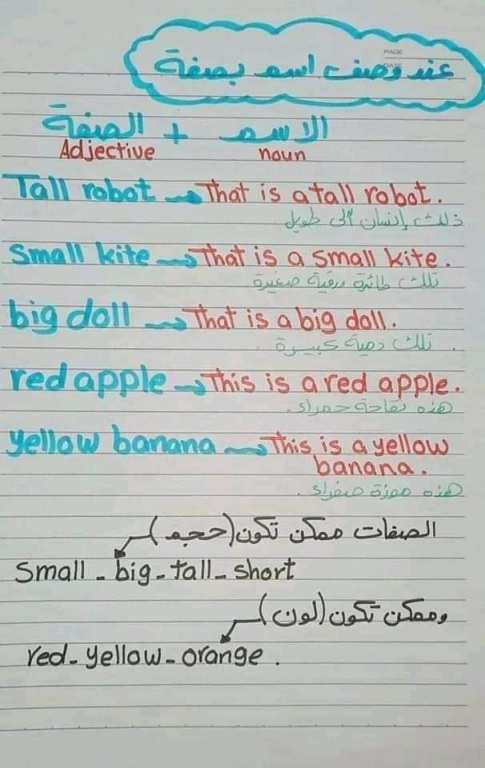 عند وصف اسم بصفة
الاسم + الصفة
Adjective noun
Tall robot → That is a tall robot.
ذلك إنسان آلي طويل
Small kite → That is a small kite.
تلك طائرة ورقية صغيرة
big doll → That is a big doll.
تلك دمية كبيرة .
red apple → This is a red apple.
هذه تفاحة حمراء.
yellow banana → This is a yellow
banana.
هذه موزة صفراء .
الصفات ممكن تكون (حجم)
Small - big - tall - short
وممكن تكون (لون)
red - yellow - orange .